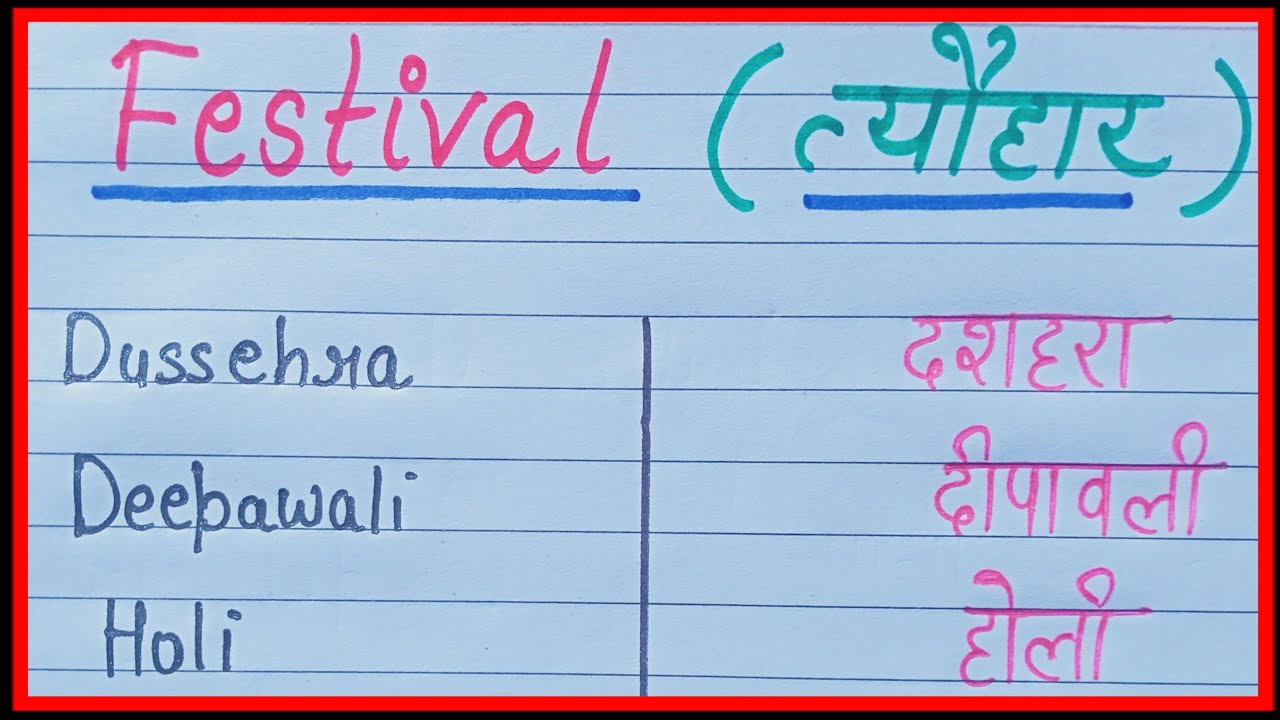 Festival (त्यौहार)
Dussehra दशहरा
Deepawali दीपावली
Holi होली